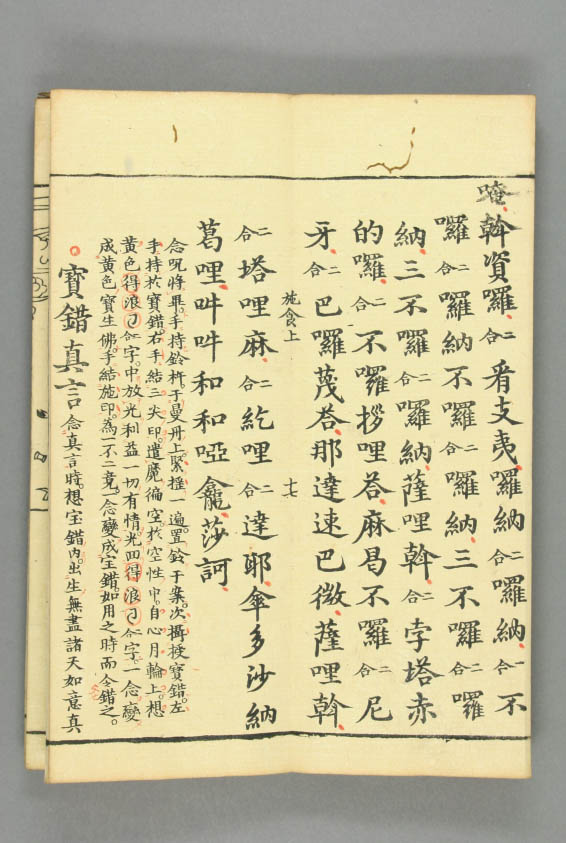 唵斡資囉二合看支夷囉納二合囉納一合不
囉二合囉納不囉二合囉納三不囉二合囉
納三不囉二合囉納薩哩斡二合孛塔赤
的囉二合不囉拶哩荅麻曷不囉二合尼
牙二合巴囉蔑荅那達速巴微薩哩斡
施食上 十七
二合塔哩麻二合紇哩二合達耶傘多沙納
葛哩吽吽和和啞龕莎訶
念呪將畢手持鈴杵于曼丹上緊搖一遍置鈴于案次攝授寶錯左
手持於寶錯右手結三尖印遣魔徧空於空性中自心月輪上想
黃色得浪二合字中放光利益一切有情光回得浪二合字一念變
成黃色寶生佛手結施印為一不二竟一念變成宝錯如用之時而念錯之
寶錯真言念真言時想宝錯內出生無盡諸天如意真